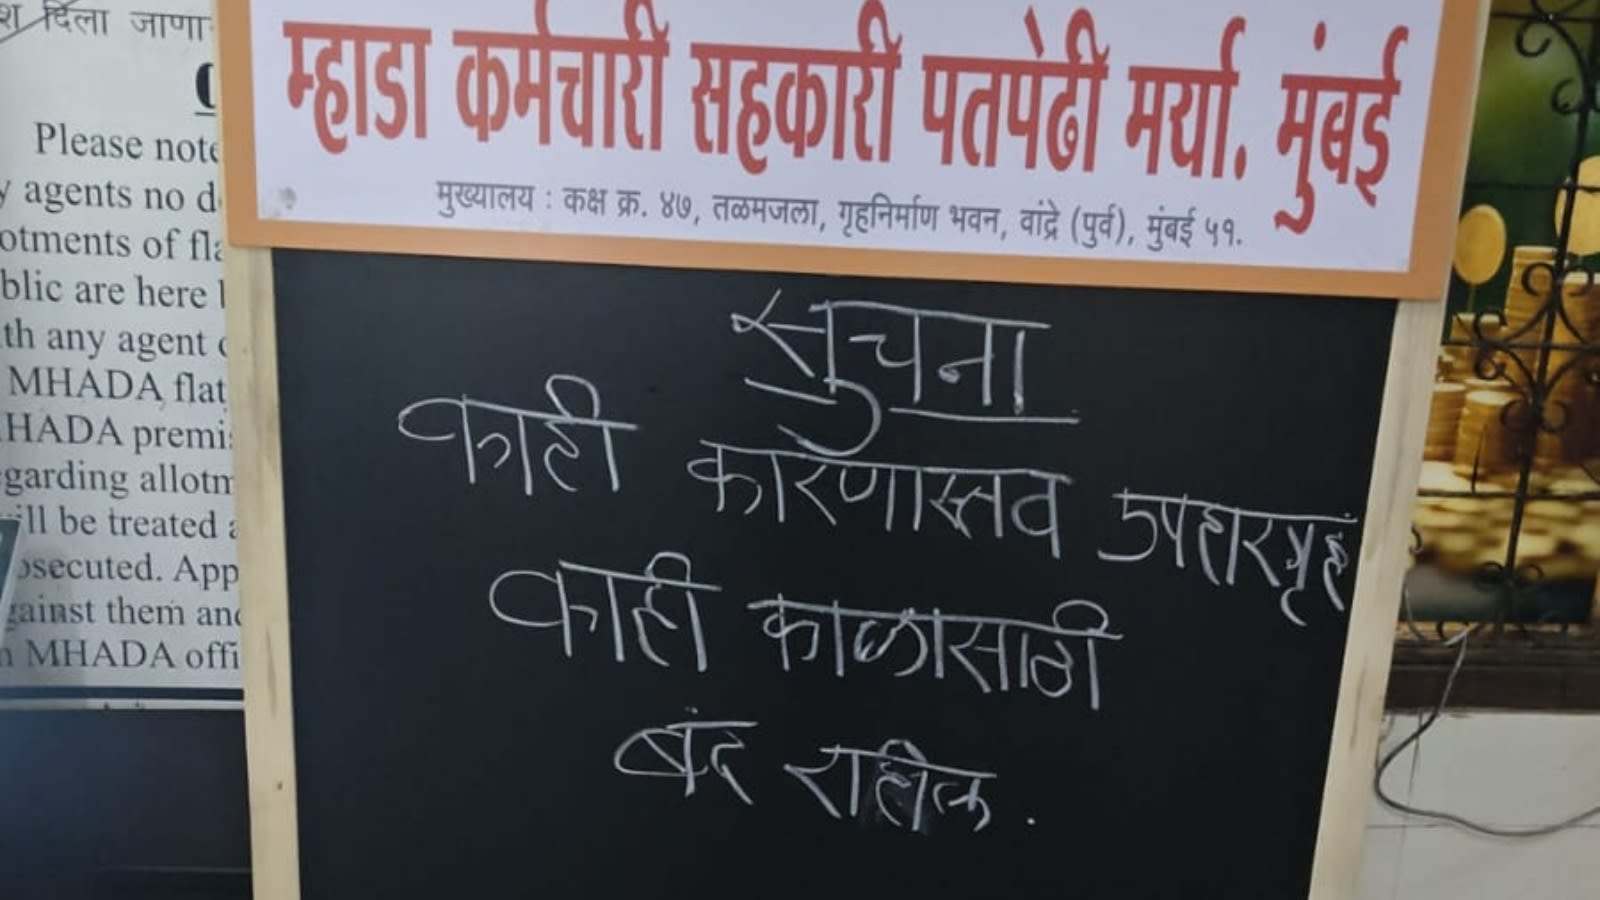 दिला जाणा
Please note
agents no d
otments of fla
blic are here
th any agent
MHADA flat
HADA premi
garding allotm
ill be treated
osecuted. App
gainst them and
MHADA offi
म्हाडा कर्मचारी सहकारी पतपेढी मर्या. मुंबई
मुख्यालय : कक्ष क्र. ४७, तळमजला, गृहनिर्माण भवन, वांद्रे (पुर्व), मुंबई ५१.
सुचना
काही कारणास्तव उपहारगृह
काही काळासाठी
बंद राहील.